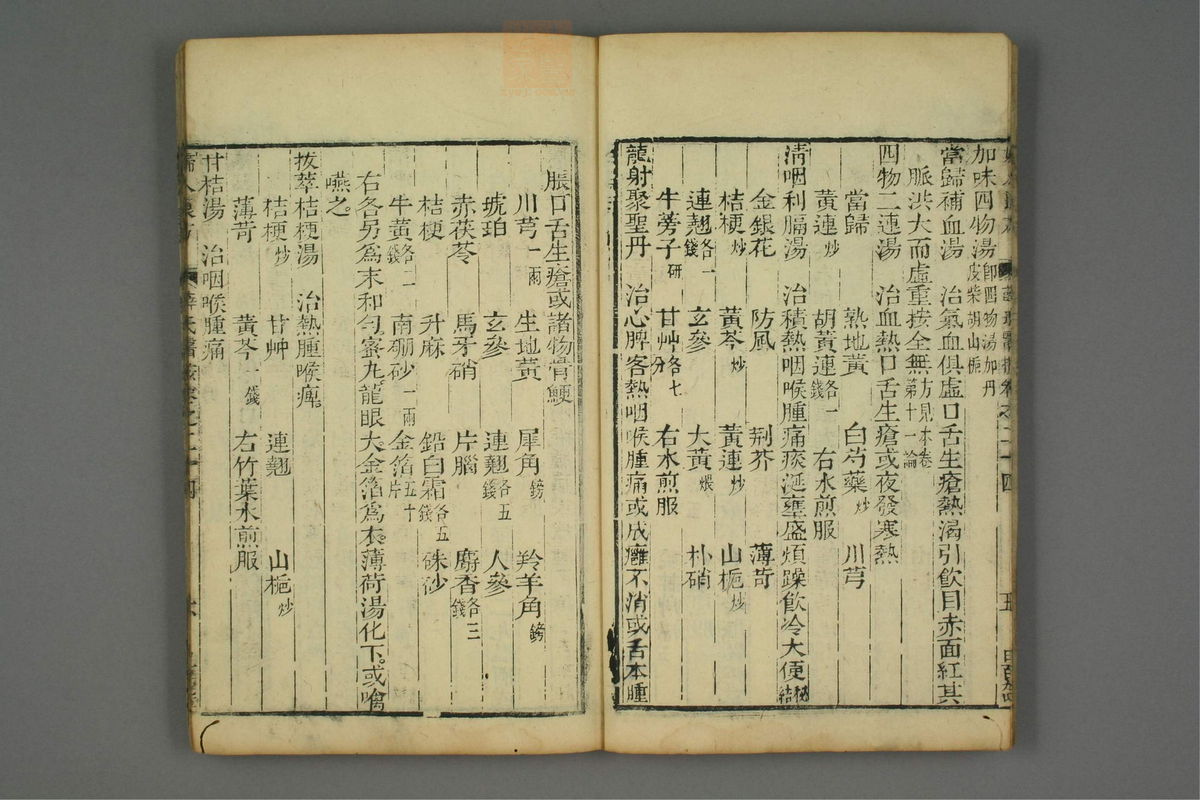 加味四物湯即四物湯加丹皮柴胡山梔
當歸補血湯　治氣血俱虛口舌生瘡熱渴引飲目赤面紅其
脈洪大而虛重按全無方見本卷第十一論
四物二連湯　治血熱口舌生瘡或夜發寒熱
當歸　熟地黃　白芍藥炒　川芎
黃連炒　胡黃連各一錢　右水煎服
清咽利膈湯　治積熱咽喉腫痛痰涎壅盛煩躁飲冷大便秘結
金銀花　防風　荆芥　薄苛
桔梗炒　黃芩炒　黃連炒　山梔炒
連翹各一錢　玄參　大黃煨　朴硝
牛蒡子研　甘艸各七分　右水煎服
龍射聚聖丹　治心脾客熱咽喉腫痛或成癰不消或舌本腫
脹口舌生瘡或諸物骨鯁
川芎一兩　生地黃　犀角鎊　羚羊角鎊
琥珀　玄參　連翹各五錢　人參
赤茯苓　馬牙硝　片腦　麝香各三錢
桔梗　升麻　鉛白霜各五錢　硃砂
牛黃各二錢　南硼砂一兩　金箔五十片
右各另爲末和勻蜜丸龍眼大金箔爲衣薄荷湯化下或噙
嚥之
拔萃桔梗湯　治熱腫喉痺
桔梗炒　甘艸　連翹　山梔炒
薄苛　黃芩一錢　右竹葉水煎服
甘桔湯　治咽喉腫痛